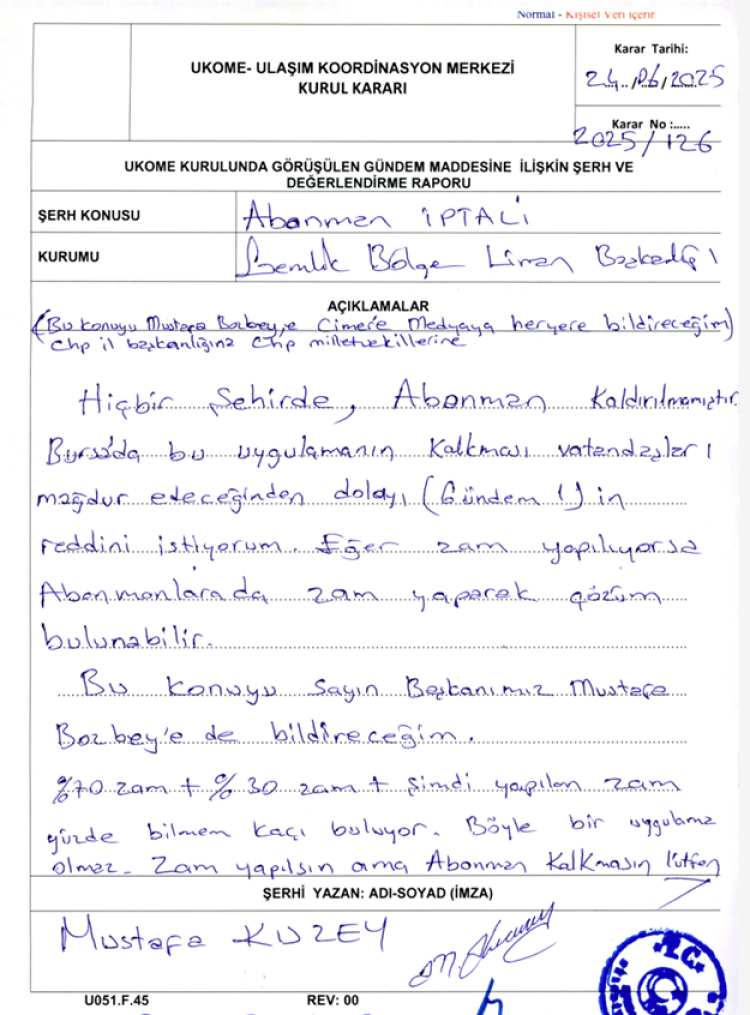 Normal - Kişisel Veri İçerir
UKOME- ULAŞIM KOORDİNASYON MERKEZİ
KURUL KARARI
Karar Tarihi:
24../06/2025
Karar No :.....
2025/126
UKOME KURULUNDA GÖRÜŞÜLEN GÜNDEM MADDESİNE İLİŞKİN ŞERH VE
DEĞERLENDİRME RAPORU
ŞERH KONUSU
Abonman İPTALİ
KURUMU
Gemlik Bölge Liman Başkanlığı
AÇIKLAMALAR
(Bu konuyu Mustafa Bozbey'e Cimer'e Medyaya heryere bildireceğim)
Chp il başkanlığına Chp milletvekillerine
Hiçbir Şehirde, Abonman Kaldırılmamıştır.
Bursa'da bu uygulamanın Kalkması vatandaşları
mağdur edeceğinden dolayı (Gündem 1) in
reddini istiyorum. Eğer zam yapılıyorsa
Abonmanlarada zam yaparak çözüm
bulunabilir.
Bu konuyu Sayın Başkanımız Mustafa
Bozbey'e de bildireceğim.
%70 zam + %30 zam + şimdi yapılan zam
yüzde bilmem kaçı buluyor. Böyle bir uygulama
olmaz. Zam yapılsın ama Abonman Kalkmasın lütfen
ŞERHİ YAZAN: ADI-SOYAD (İMZA)
Mustafa KUZEY
U051.F.45
REV: 00
T.C.